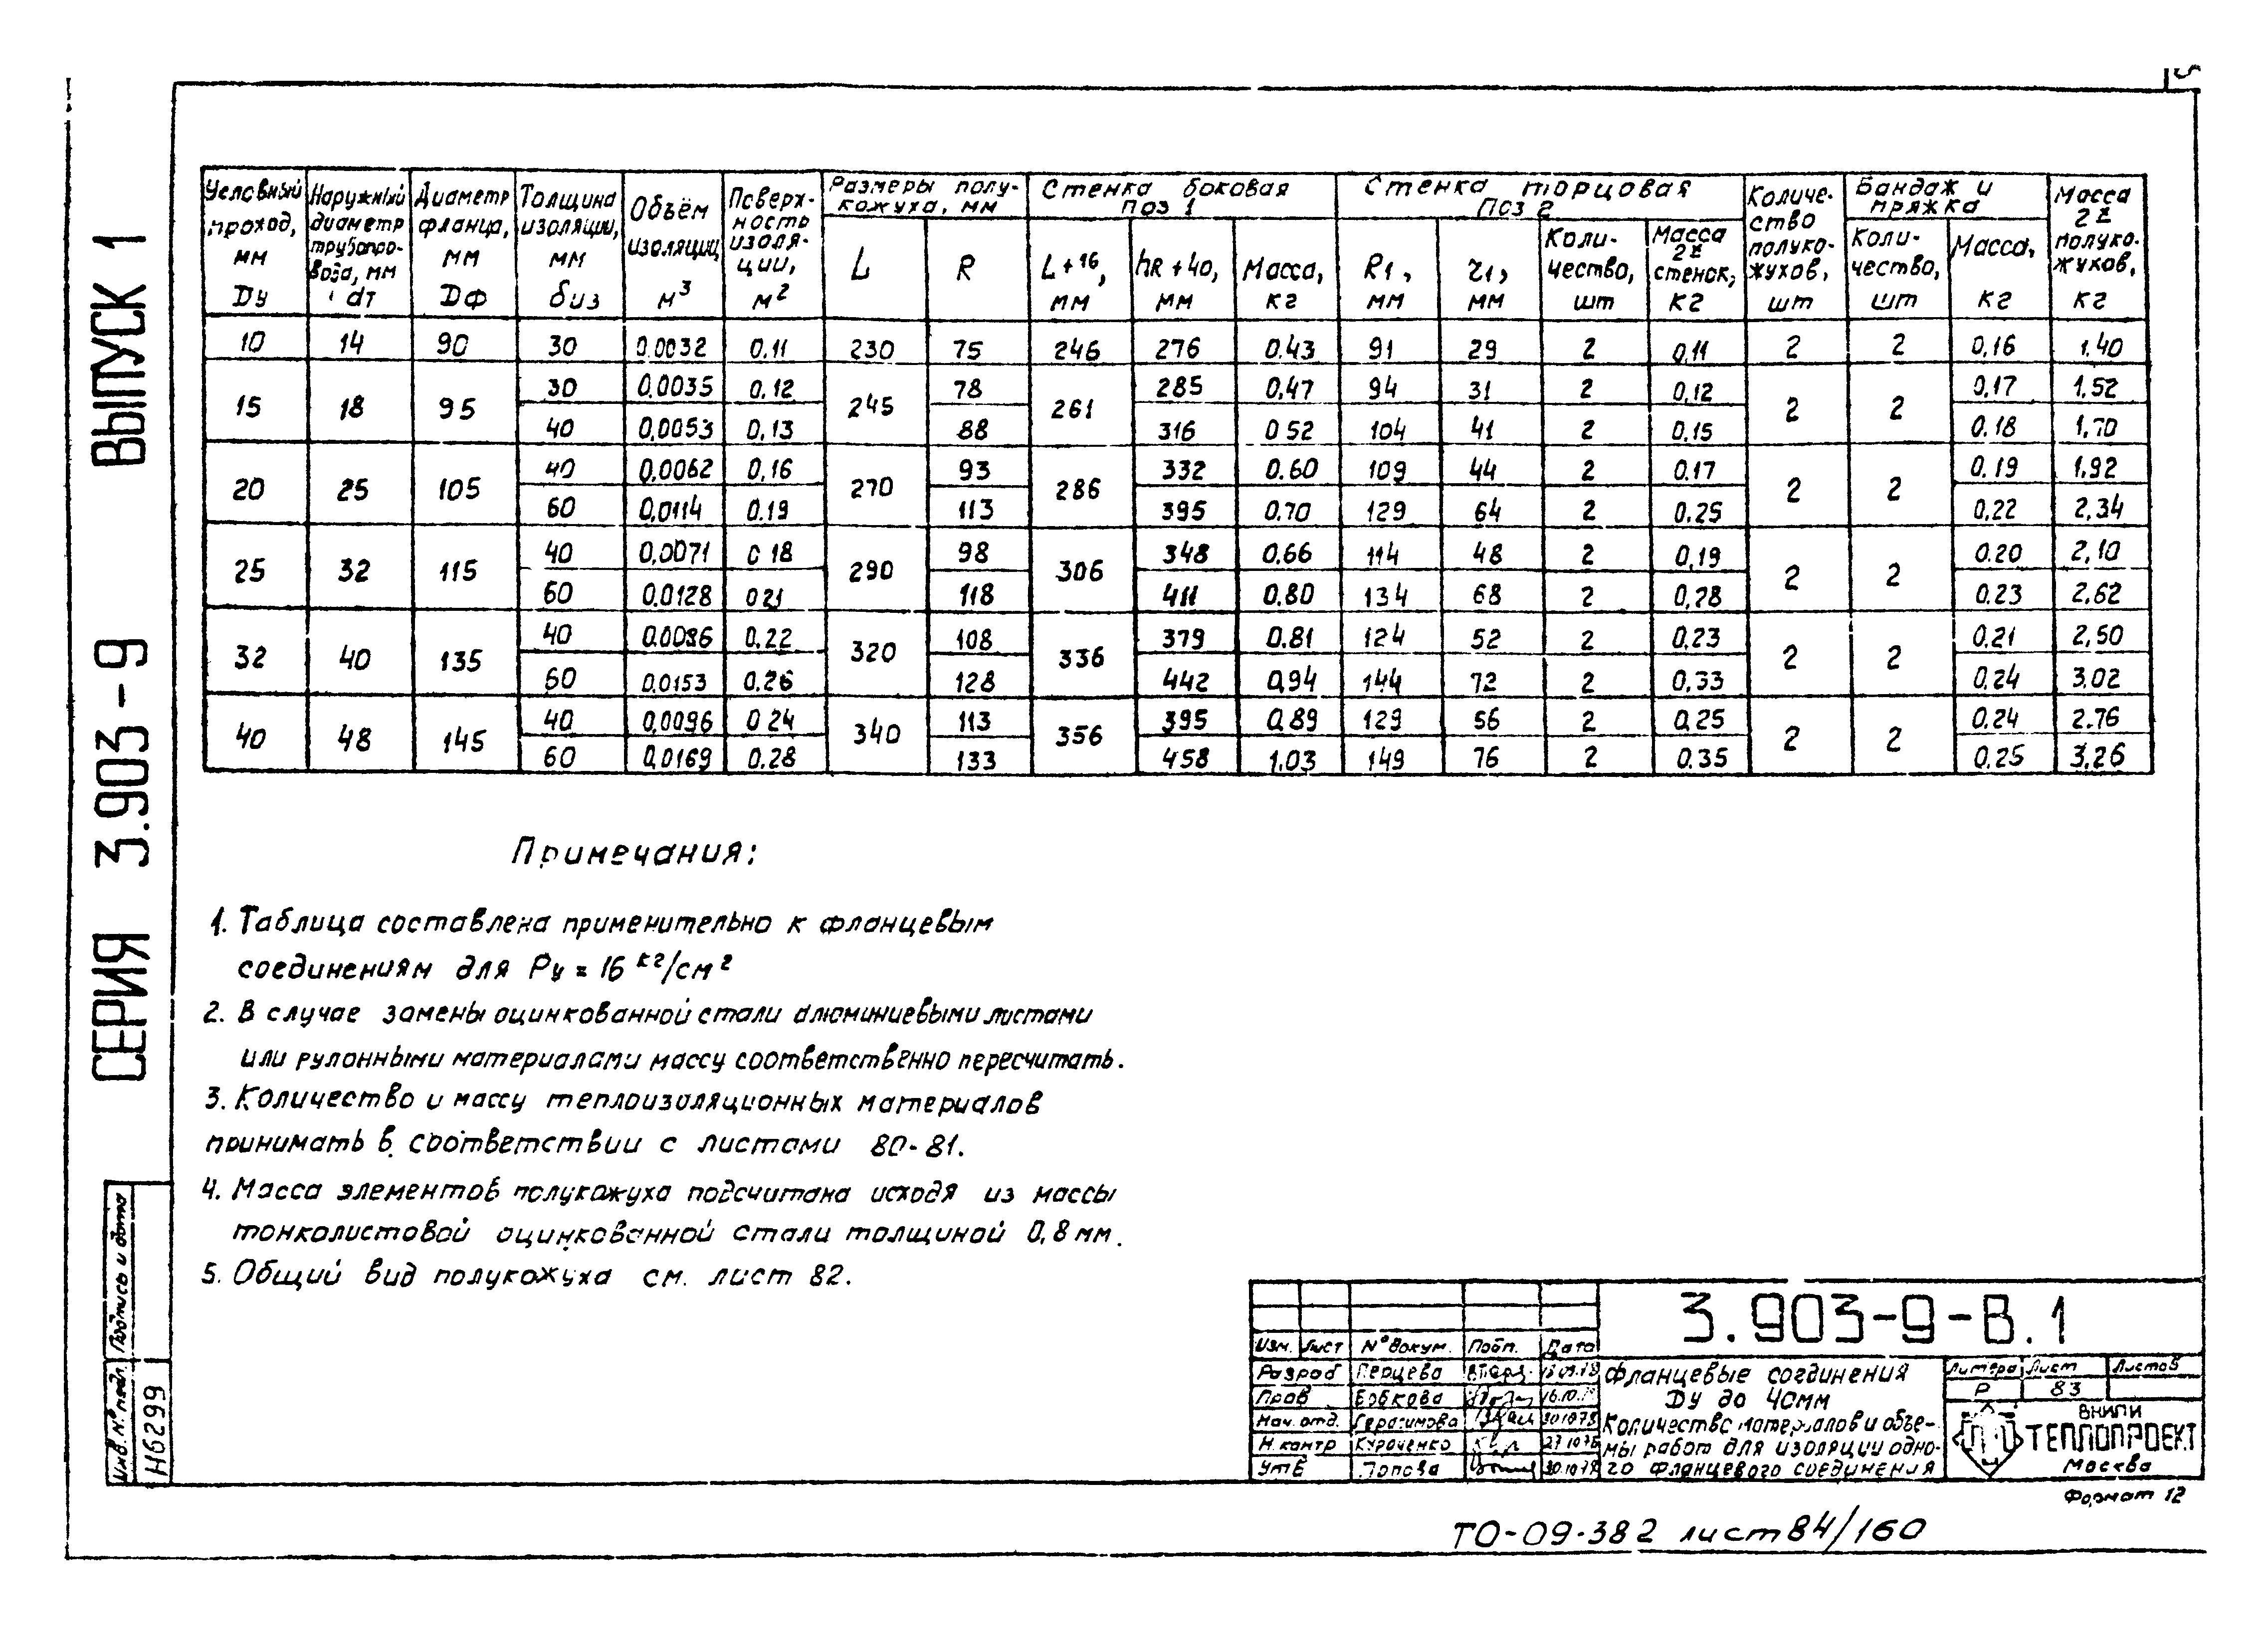 СЕРИЯ 3.903-9 ВЫПУСК 1
Условный проход, мм Ду
Наружный диаметр трубопровода, мм dт
Диаметр фланца, мм Дф
Толщина изоляции, мм биз
Объём изоляции м³
Поверхность изоляции, м²
Размеры полукожуха, мм L R
Стенка боковая поз 1 L+16, мм hR+40, мм Масса, кг
Стенка торцовая поз 2 R1, мм r1, мм Количество, шт Масса 2х стенок, кг
Количество полукожухов, шт
Бандаж и пряжка Количество, шт Масса, кг
Масса 2х полукожухов, кг
10 14 90 30 0.0032 0.11 230 75 246 276 0.43 91 29 2 0,11 2 2 0,16 1.40
15 18 95 30 0.0035 0.12 245 78 261 285 0,47 94 31 2 0,12 2 2 0,17 1,52
40 0,0053 0,13 88 316 0 52 104 41 2 0.15 0.18 1,70
20 25 105 40 0,0062 0,16 270 93 286 332 0.60 109 44 2 0.17 2 2 0.19 1,92
60 0,0114 0.19 113 395 0.70 129 64 2 0.25 0,22 2,34
25 32 115 40 0,0071 0 18 290 98 306 348 0,66 114 48 2 0,19 2 2 0.20 2,10
60 0.0128 0 21 118 411 0,80 134 68 2 0,28 0.23 2,62
32 40 135 40 0.0086 0,22 320 108 336 379 0.81 124 52 2 0.23 2 2 0.21 2,50
60 0.0153 0.26 128 442 0,94 144 72 2 0.33 0.24 3,02
40 48 145 40 0,0096 0 24 340 113 356 395 0,89 129 56 2 0,25 2 2 0.24 2.76
60 0,0169 0.28 133 458 1.03 149 76 2 0.35 0.25 3,26
Примечания:
1. Таблица составлена применительно к фланцевым
соединениям для Ру = 16 кг/см²
2. В случае замены оцинкованной стали алюминиевыми листами
или рулонными материалами массу соответственно пересчитать.
3. Количество и массу теплоизоляционных материалов
принимать в соответствии с листами 80-81.
4. Масса элементов полукожуха подсчитана исходя из массы
тонколистовой оцинкованной стали толщиной 0,8 мм.
5. Общий вид полукожуха см. лист 82.
Инв. № подл. Подпись и дата
Н6299
3.903-9-В.1
Изм. Лист № докум. Подп. Дата
Разраб Перцева
Пров Бобкова
Нач. отд. Герасимова
Н. контр Куроченко
Утв Попова
Фланцевые соединения
Ду до 40мм
Количество материалов и объе-
мы работ для изоляции одно-
го фланцевого соединения
Литера Лист Листов
Р 83
ВНИПИ
ТЕПЛОПРОЕКТ
Москва
Формат 12
ТО-09-382 лист 84/160